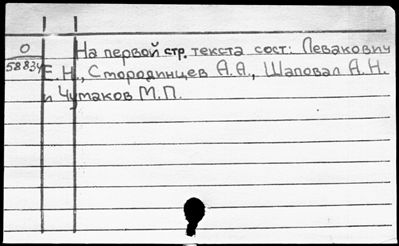 О
58834
На первой стр. текста сост: Левакович
Е.Н., Стородинцев А.А., Шаповал А.Н.
и Чумаков М.П.